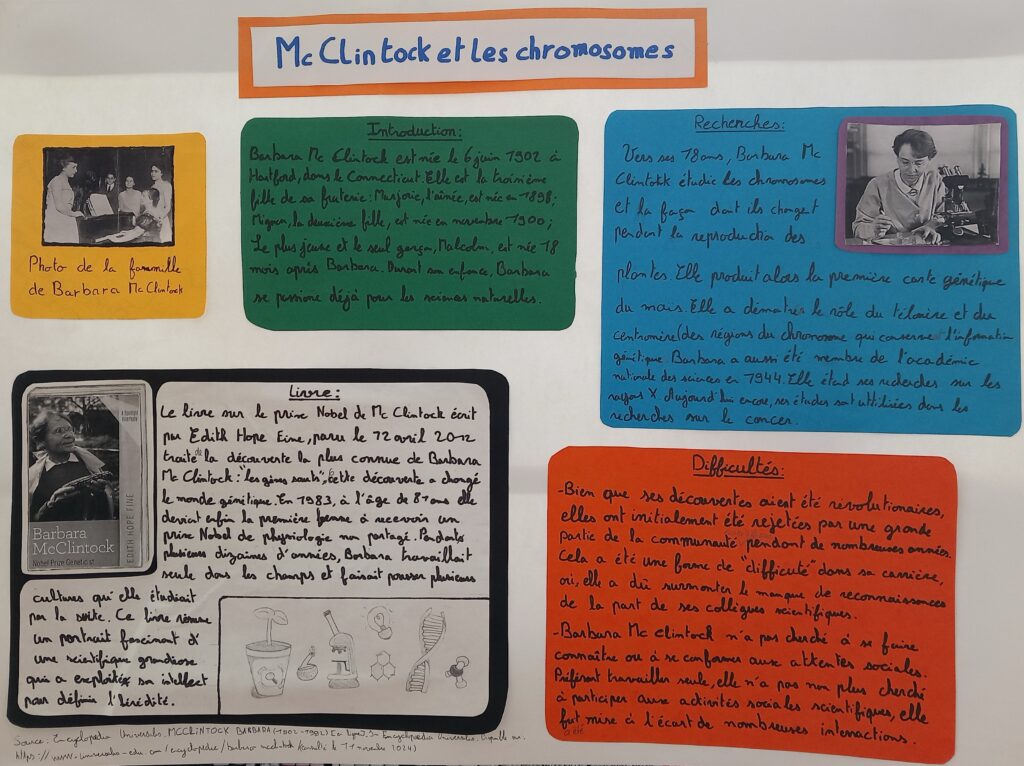 Mc Clintock et les chromosomes
Photo de la fammille
de Barbara Mc Clintock
Introduction:
Barbara Mc Clintock est née le 6 juin 1902 à
Hartford, dans le Connecticut. Elle est la troisième
fille de sa fraterie: Marjorie, l'aînée, est née en 1898;
Mignon, la deuxième fille, est née en novembre 1900;
Le plus jeune et le seul garçon, Malcolm, est née 18
mois après Barbara. Durant son enfance, Barbara
se passione déjà pour les sciences naturelles.
Recherches:
Vers ses 18 ans, Barbara Mc
Clintokk étudie les chromosomes
et la façon dont ils changent
pendant la reproduction des
plantes. Elle produit alors la première carte génétique
du maïs. Elle a démontrer le rôle du télomère et du
centromère (des régions du chromosome qui conserve l'information
génétique. Barbara a aussi été membre de l'académie
nationale des sciences en 1944. Elle étend ses recherches sur les
rayons X Aujourd'hui encore, ses études sont utilisées dans les
recherches sur le cancer.
Livre:
Le livre sur le prix Nobel de Mc Clintock écrit
par Edith Hope Fine, paru le 12 avril 2012
traite de la découverte la plus connue de Barbara
Mc Clintock: "les gènes sauts", cette découverte a changé
le monde génétique. En 1983, à l'âge de 81 ans elle
devient enfin la première femme à recevoir un
prix Nobel de physiologie non partagé. Pendants
plusieurs dizaines d'années, Barbara travaillait
seule dans les champs et faisait pousser plusieurs
cultures qu'elle étudiait
par la suite. Ce livre résume
un portrait fascinant d'
une scientifique grandiose
qui a exploitée son intellect
pour définir l'hérédité.
A
EDITH HOPE FINE
Barbara
McClintock
Nobel Prize Geneticist
Difficultés:
-Bien que ses découvertes aient été révolutionaires,
elles ont initialement été rejetées par une grande
partie de la communauté pendant de nombreuses années.
Cela a été une forme de "difficuté" dans sa carrière,
où, elle a dû surmonter le manque de reconnaissances
de la part de ses collègues scientifiques.
-Barbara Mc Clintock n'a pas cherché à se faire
connaître ou à se conformes aux attentes sociales.
Préférant travailler seule, elle n'a pas non plus cherché
à participer aux activités sociales scientifiques, elle
fut mise à l'écart de nombreuses interactions.
Source: Encyclopædia Universalis. MCCLINTOCK BARBARA (1902-1992) [en ligne]. In Encyclopædia Universalis. Disponible sur:
https://www.universalis-edu.com/encyclopedie/barbara-mcclintock (consulté le 11 novembre 2024)